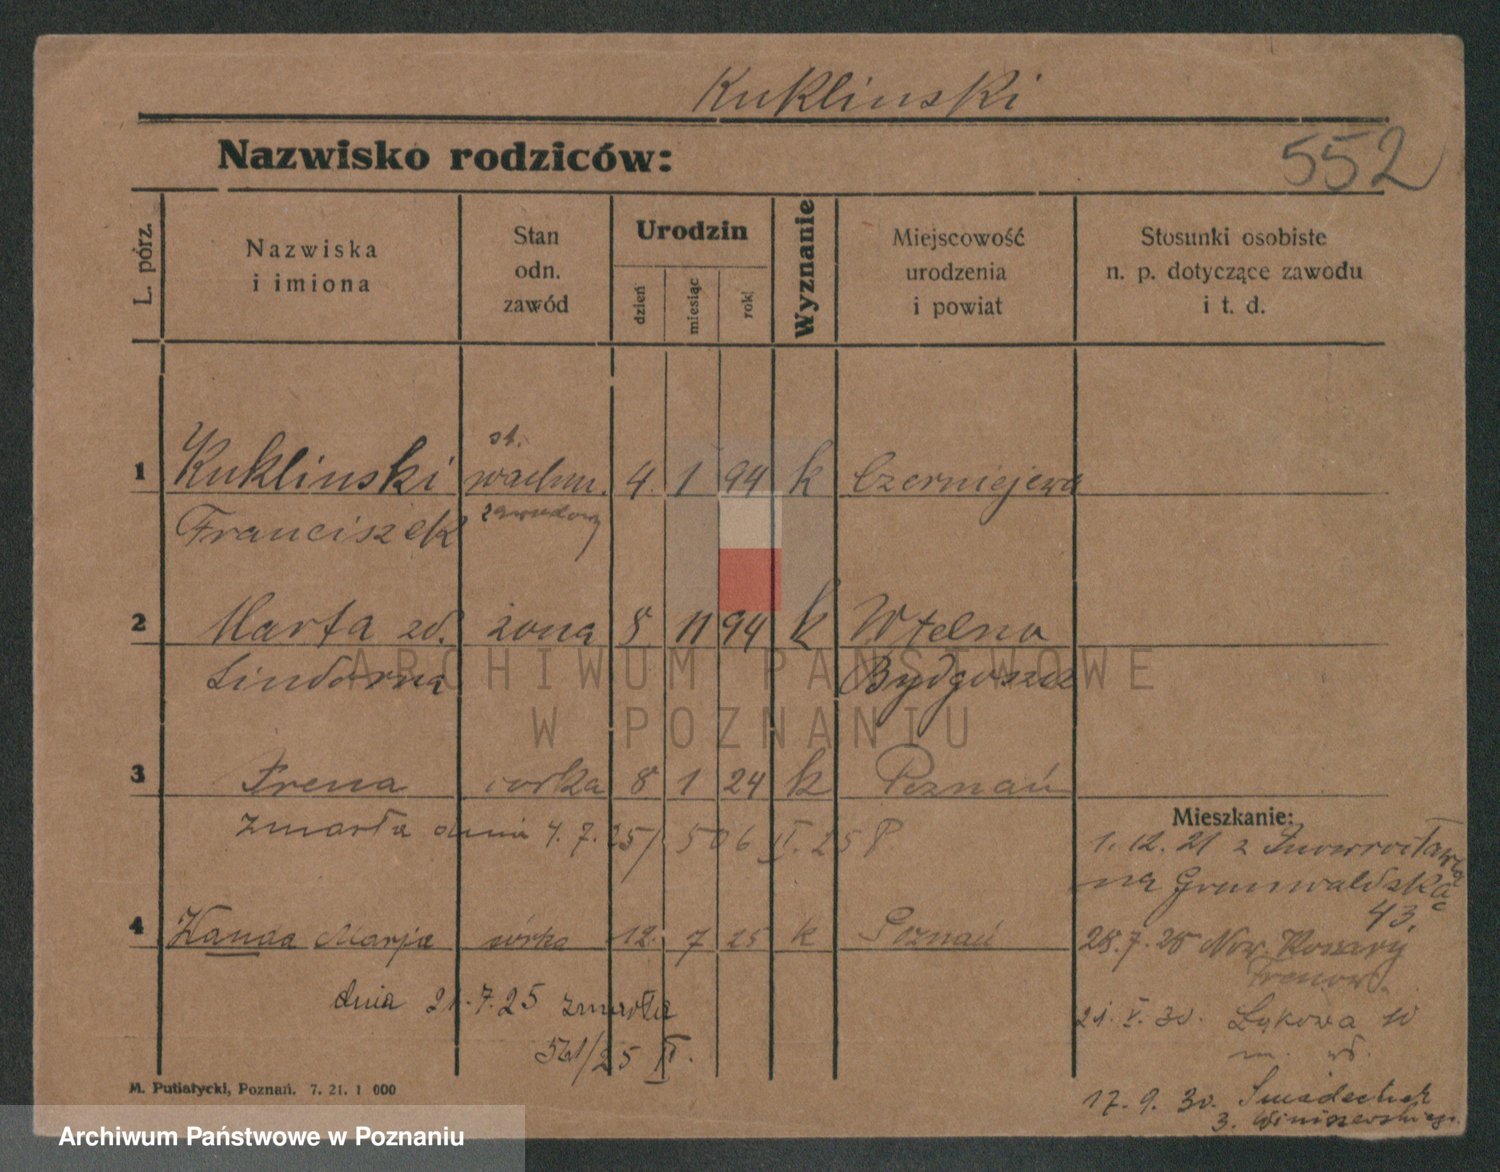 Kuklinski
Nazwisko rodziców:
552
L. pórz.
Nazwiska
i imiona
Stan
odn.
zawód
Urodzin
dzień
miesiąc
rok
Wyznanie
Miejscowość
urodzenia
i powiat
Stosunki osobiste
n. p. dotyczące zawodu
i t. d.
st.
1 Kuklinski wachm. 4. 1 94 k Czerniejewo
Franciszek zawodowy
2 Marta zd. żona 8 11 94 k Wtelno
Bydgoszcz
ARCHIWUM PAŃSTWOWE
W POZNANIU
3 Irena córka 8 1 24 k Poznań
zmarła dnia 4.7.25/ 506 II. 25 P
Mieszkanie:
1. 12. 21 z Inowrocławia
na Grunwaldzka
43.
4 Wanda Marja córka 12. 7 25 k Poznań
28. 7. 28 Now. Koszary
dnia 21.7.25 zmarła
21. V. 30. Łąkowa 10
561/25 II.
M. Putiatycki, Poznań. 7. 21. 1 000
17. 9. 30. Śniadeckich
3.
Archiwum Państwowe w Poznaniu